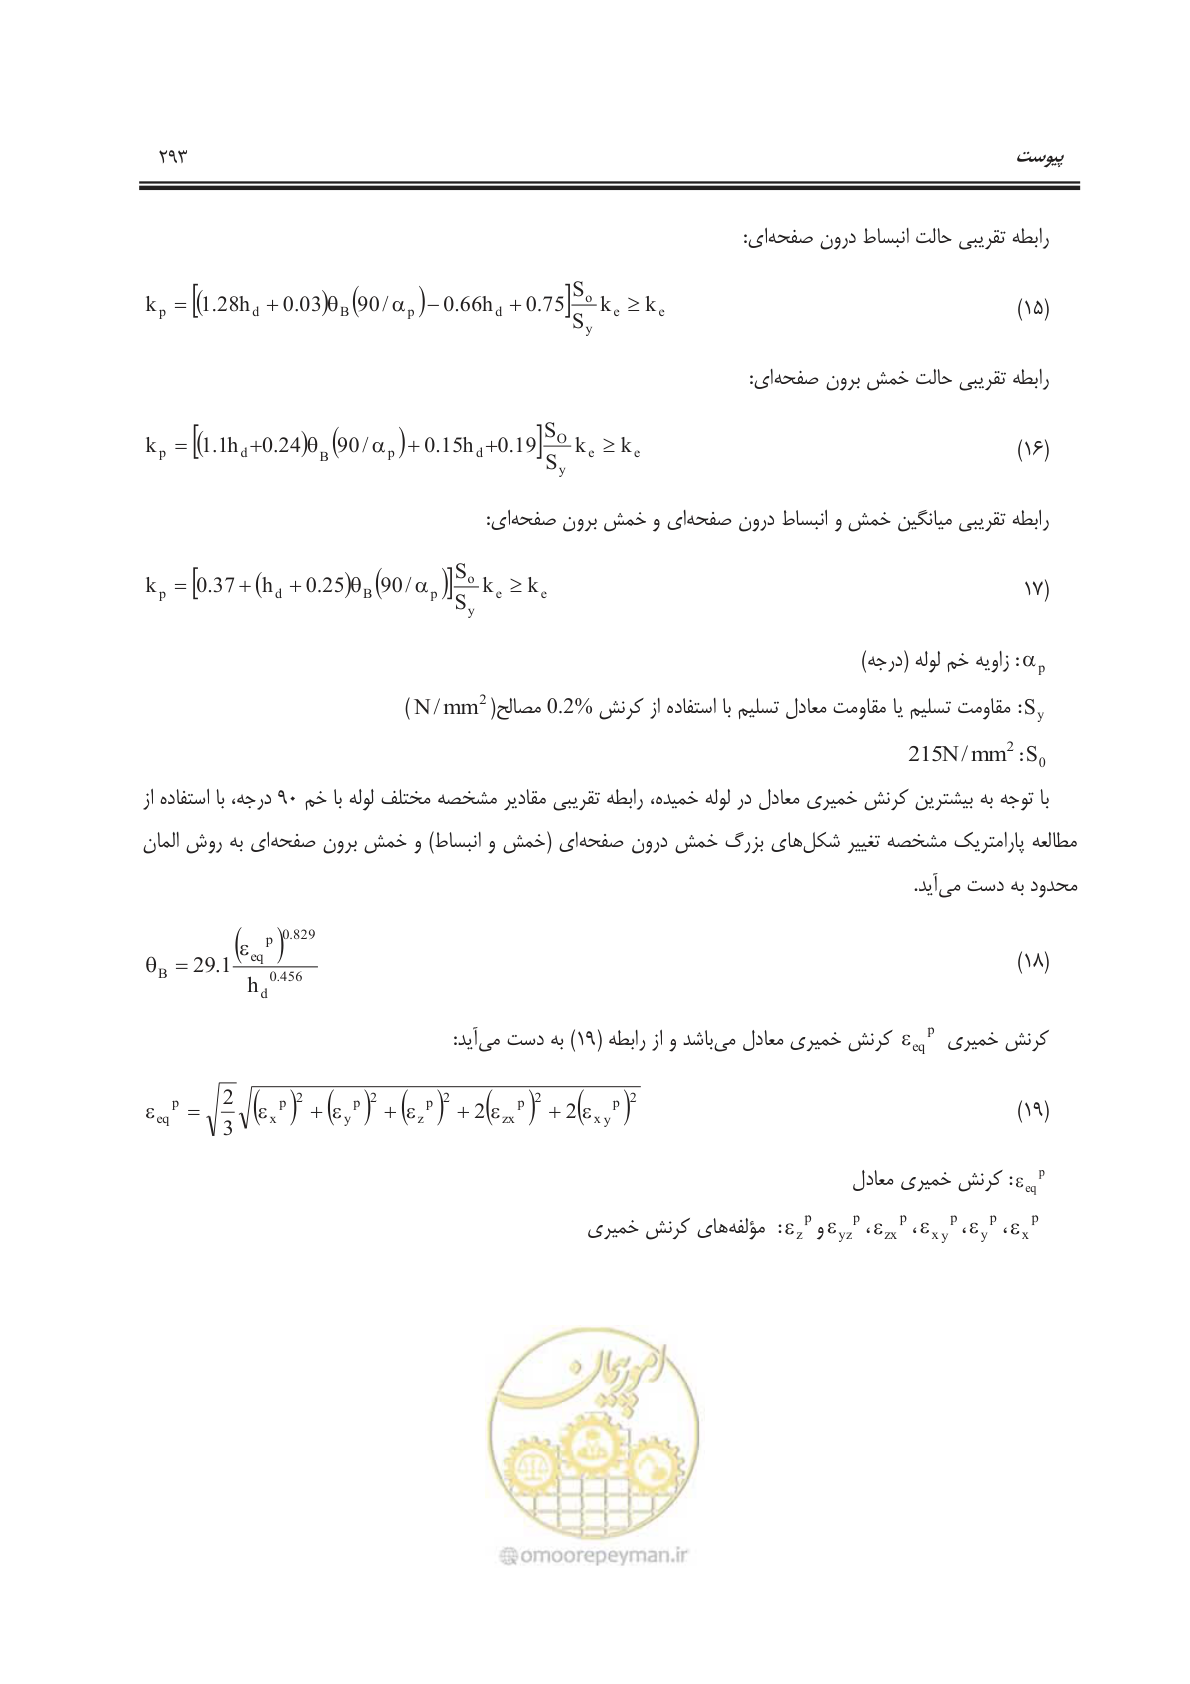 پیوست ۲۹۳
رابطه تقریبی حالت انبساط درون صفحه‌ای:
k_p = [(1.28h_d + 0.03)θ_B(90/α_p) − 0.66h_d + 0.75] S_o/S_y k_e ≥ k_e (۱۵)
رابطه تقریبی حالت خمش برون صفحه‌ای:
k_p = [(1.1h_d+0.24)θ_B(90/α_p) + 0.15h_d+0.19] S_O/S_y k_e ≥ k_e (۱۶)
رابطه تقریبی میانگین خمش و انبساط درون صفحه‌ای و خمش برون صفحه‌ای:
k_p = [0.37 + (h_d + 0.25)θ_B(90/α_p)] S_o/S_y k_e ≥ k_e ۱۷)
α_p: زاویه خم لوله (درجه)
S_y: مقاومت تسلیم یا مقاومت معادل تسلیم با استفاده از کرنش 0.2% مصالح( N/mm² )
S_0: 215N/mm²
با توجه به بیشترین کرنش خمیری معادل در لوله خمیده، رابطه تقریبی مقادیر مشخصه مختلف لوله با خم ۹۰ درجه، با استفاده از
مطالعه پارامتریک مشخصه تغییر شکل‌های بزرگ خمش درون صفحه‌ای (خمش و انبساط) و خمش برون صفحه‌ای به روش المان
محدود به دست می‌آید.
θ_B = 29.1 (ε_eq^p)^0.829 / h_d^0.456 (۱۸)
کرنش خمیری ε_eq^p کرنش خمیری معادل می‌باشد و از رابطه (۱۹) به دست می‌آید:
ε_eq^p = √(2/3) √((ε_x^p)² + (ε_y^p)² + (ε_z^p)² + 2(ε_zx^p)² + 2(ε_xy^p)²) (۱۹)
ε_eq^p: کرنش خمیری معادل
ε_x^p، ε_y^p، ε_xy^p، ε_zx^p، ε_yz^p و ε_z^p: مؤلفه‌های کرنش خمیری
امور پیمان
@omoorepeyman.ir